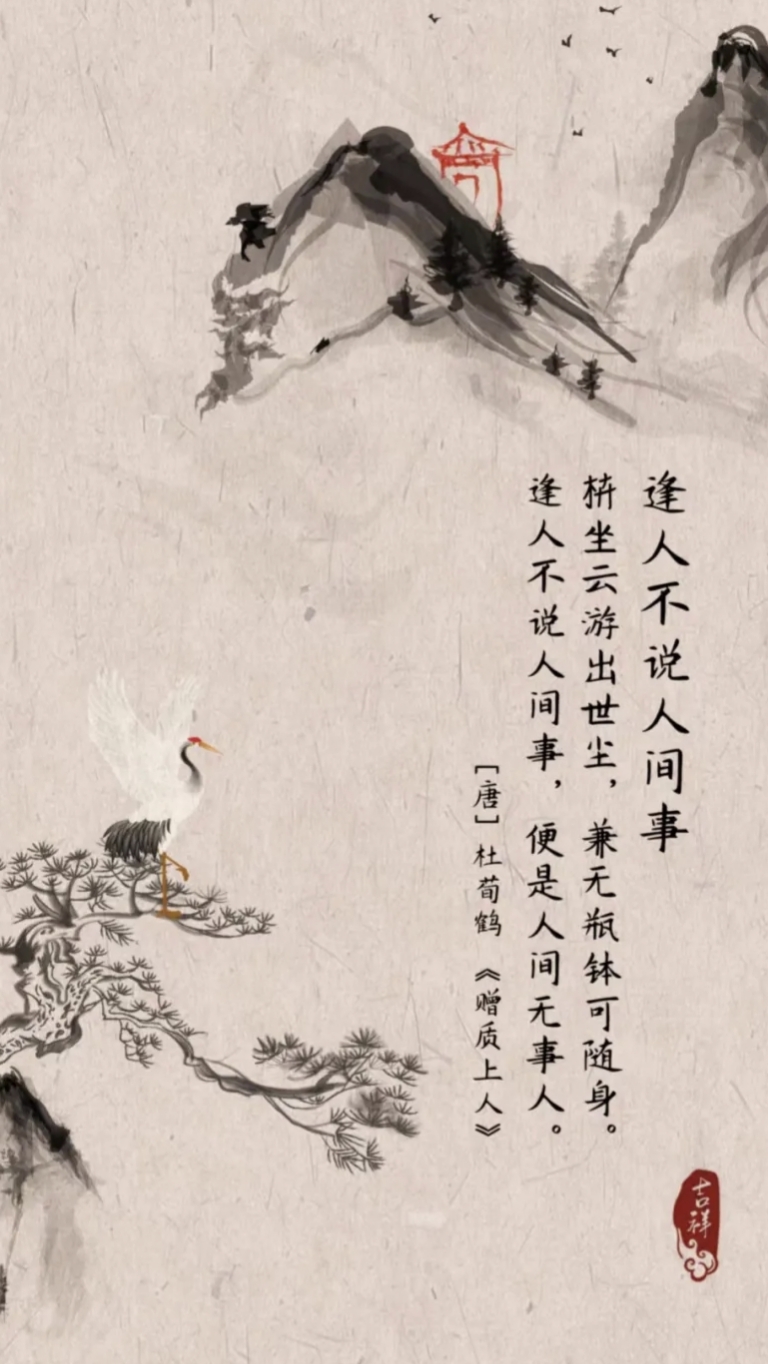 逢人不说人间事
枿坐云游出世尘，兼无瓶钵可随身。
逢人不说人间事，便是人间无事人。
［唐］杜荀鹤《赠质上人》
吉祥